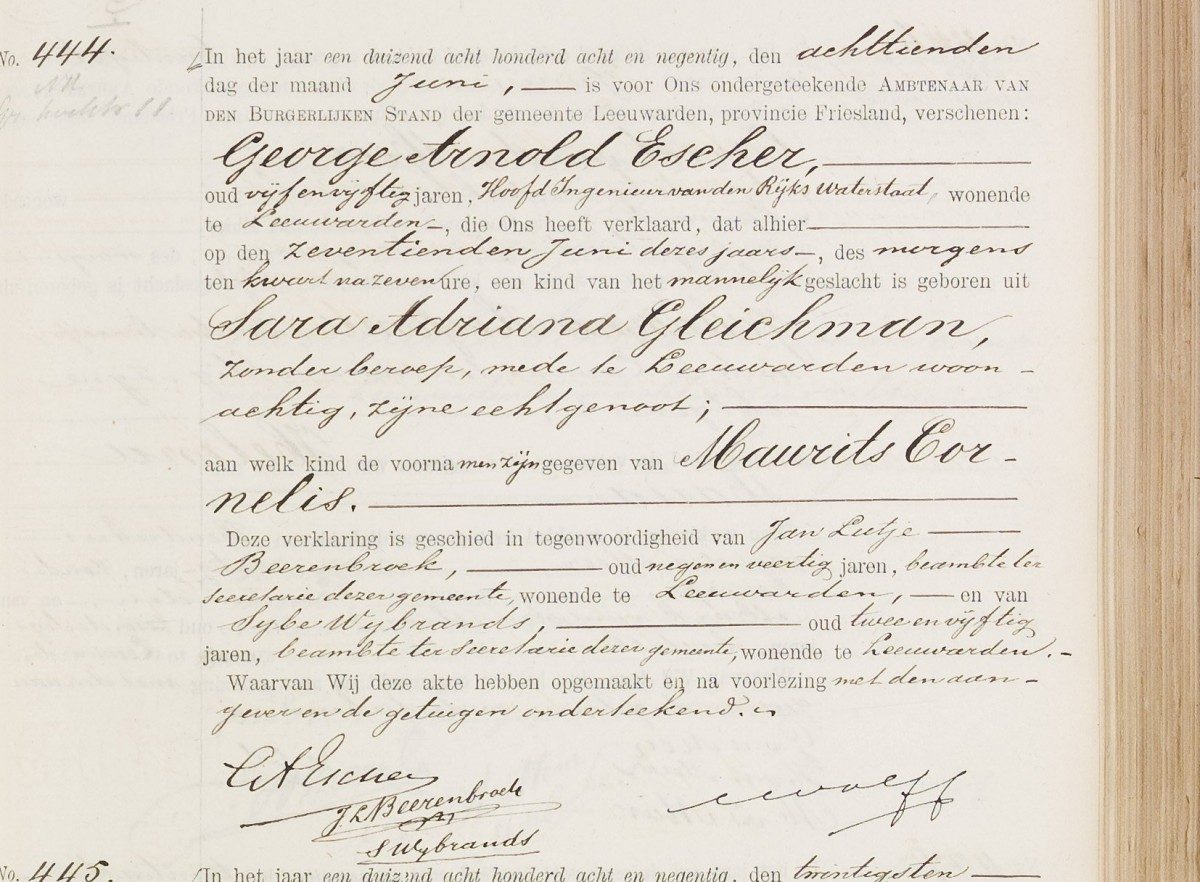 No. 444.
In het jaar een duizend acht honderd acht en negentig, den achttienden
dag der maand Juni, — is voor Ons ondergeteekende AMBTENAAR VAN
DEN BURGERLIJKEN STAND der gemeente Leeuwarden, provincie Friesland, verschenen:
George Arnold Escher,
oud vijf en vijftig jaren, Hoofd Ingenieur van den Rijks Waterstaat, wonende
te Leeuwarden —, die Ons heeft verklaard, dat alhier
op den zeventienden Juni dezes jaars —, des morgens
ten kwart na zeven ure, een kind van het mannelijk geslacht is geboren uit
Sara Adriana Gleichman,
zonder beroep, mede te Leeuwarden woon-
achtig, zijne echtgenoot;
aan welk kind de voornamen zijn gegeven van Maurits Cor-
nelis.
Deze verklaring is geschied in tegenwoordigheid van Jan Lutje
Beerenbroek, — oud negen en veertig jaren, beambte ter
secretarie dezer gemeente, wonende te Leeuwarden, — en van
Sybe Wybrands, — oud twee en vijftig
jaren, beambte ter secretarie dezer gemeente, wonende te Leeuwarden. -
Waarvan Wij deze akte hebben opgemaakt en na voorlezing met den aan-
gever en de getuigen onderteekend.
GAEscher
JLBeerenbroek
SWybrands
Wolff
No. 445.
In het jaar een duizend acht honderd acht en negentig, den twintigsten